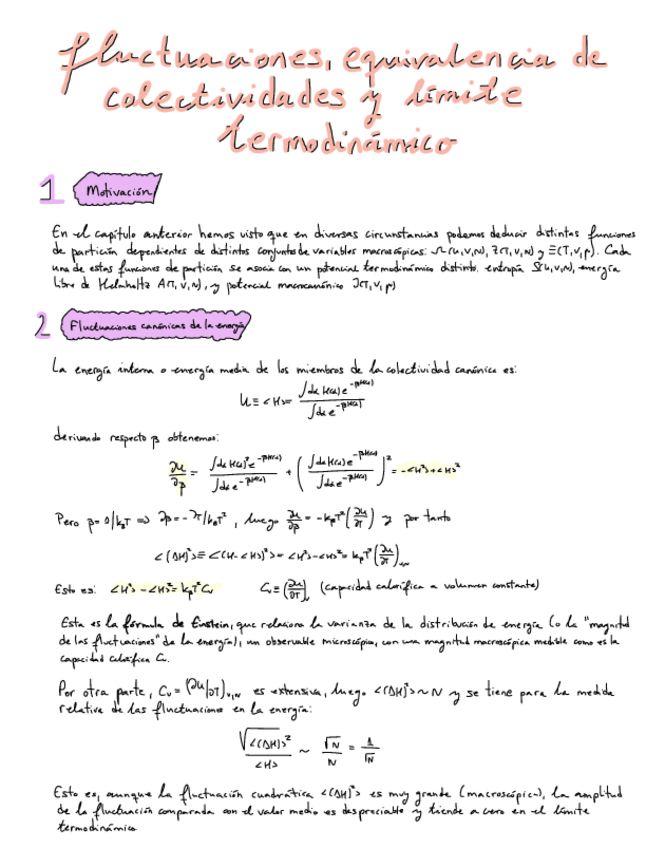 fluctuaciones, equivalencia de
colectividades y límite
termodinámico
1 Motivación
En el capítulo anterior hemos visto que en diversas circunstancias podemos deducir distintas funciones
de partición dependientes de distintos conjuntos de variables macroscópicas: Ω(u,v,N), Z(T,v,N) y Ξ(T,V,μ). Cada
una de estas funciones de partición se asocia con un potencial termodinámico distinto. entropía S(u,v,N), energía
libre de Helmholtz A(T,V,N), y potencial macrocanónico J(T,V,μ)
2 Fluctuaciones canónicas de la energía
La energía interna o energía media de los miembros de la colectividad canónica es:
U ≡ <H> = ∫dx H(x) e^-βH(x) / ∫dx e^-βH(x)
derivando respecto β obtenemos:
∂u/∂β = ∫dx H(x)² e^-βH(x) / ∫dx e^-βH(x) + (∫dx H(x) e^-βH(x) / ∫dx e^-βH(x))² = -<H²> + <H>²
Pero β = 1/k_BT ⇒ ∂β = -∂T/k_BT², luego ∂u/∂β = -k_BT² (∂u/∂T) y por tanto
<(ΔH)²> ≡ <(H-<H>)²> = <H²> - <H>² = k_BT² (∂u/∂T)v,N
Esto es: <H²> - <H>² = k_BT² Cv   Cv ≡ (∂u/∂T)v (capacidad calorífica a volumen constante)
Esta es la fórmula de Einstein, que relaciona la varianza de la distribución de energía (o la "magnitud
de las fluctuaciones" de la energía), un observable microscópico, con una magnitud macroscópica medible como es la
capacidad calorífica Cv.
Por otra parte, Cv = (∂u/∂T)v,N es extensiva, luego <(ΔH)²> ~ N y se tiene para la medida
relativa de las fluctuaciones en la energía:
√<(ΔH)>² / <H> ~ √N / N = 1/√N
Esto es, aunque la fluctuación cuadrática <(ΔH)²> es muy grande (macroscópica), la amplitud
de la fluctuación comparada con el valor medio es despreciable y tiende a cero en el límite
termodinámico